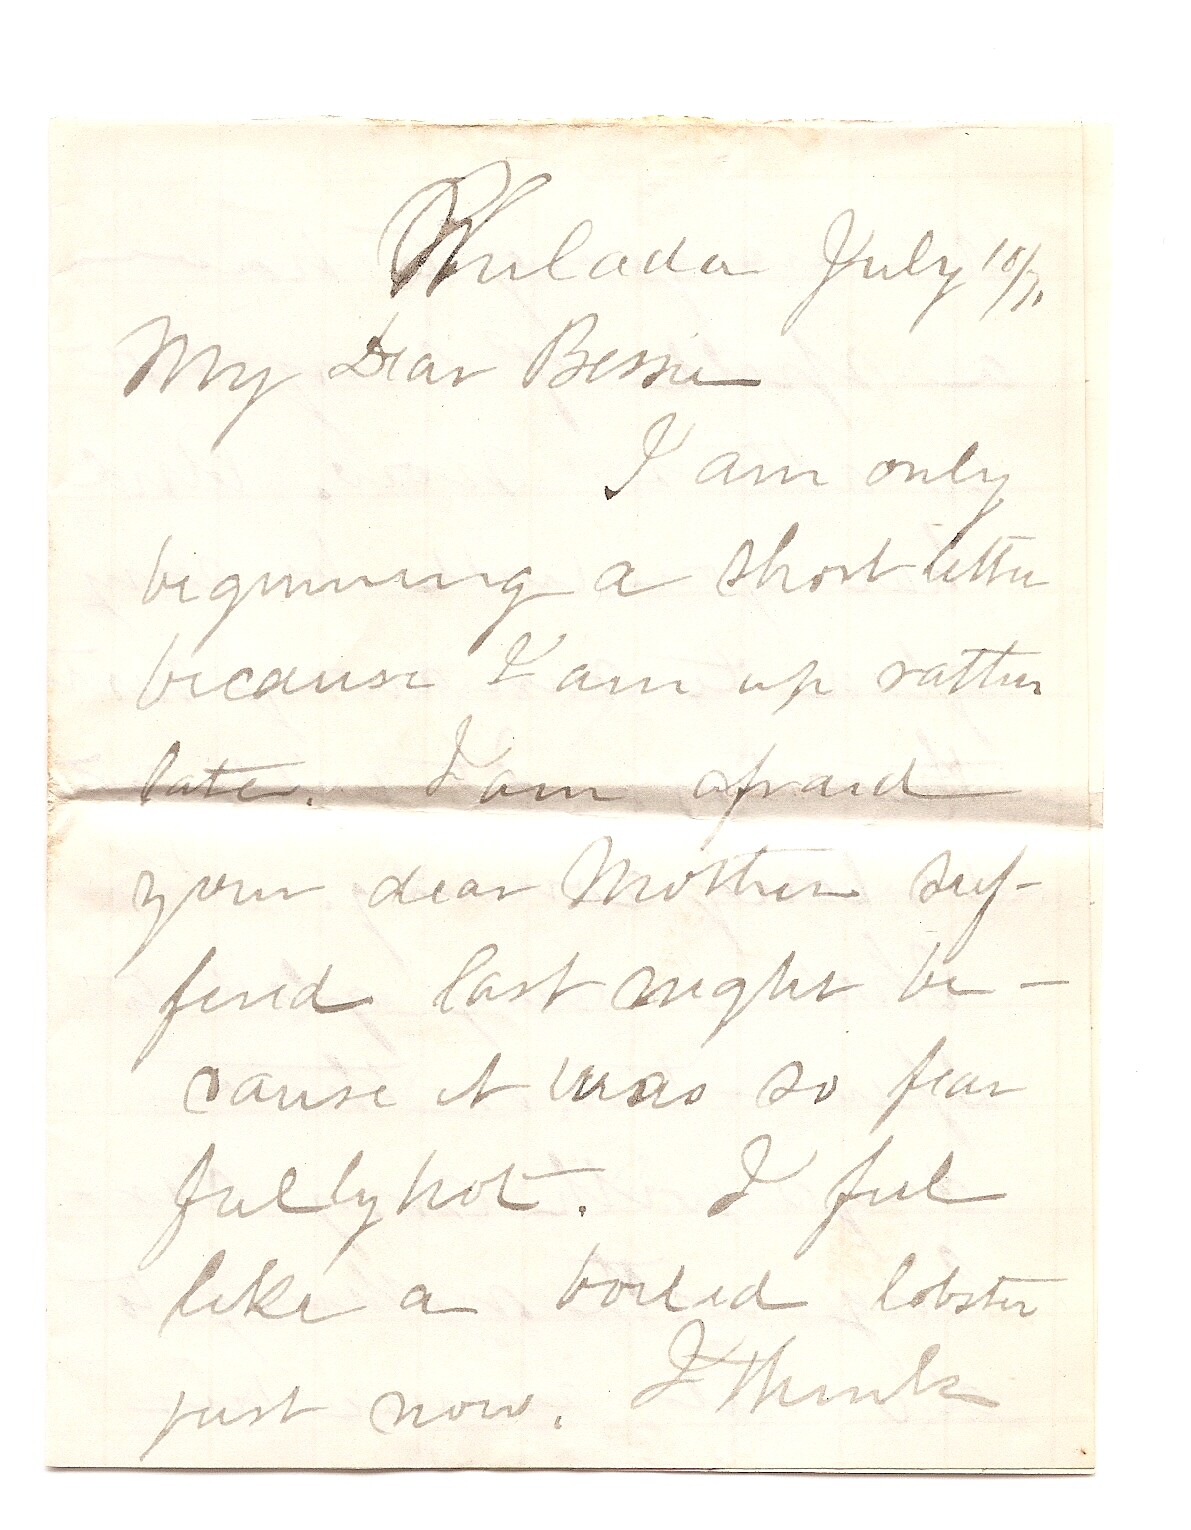 Philada July 10/71
My Dear Bessie
I am only
beginning a short letter
because I am up rather
late. I am afraid
your dear Mother suf-
fered last night be-
cause it was so fear
fully hot. I feel
like a boiled lobster
just now. I think